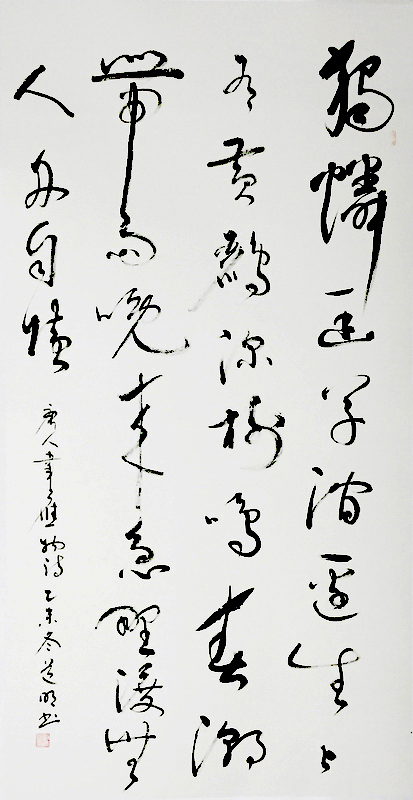 獨憐幽草澗邊生上
有黃鸝深樹鳴春潮
帶雨晚來急野渡無
人舟自橫
唐人韋應物詩乙未冬道明書